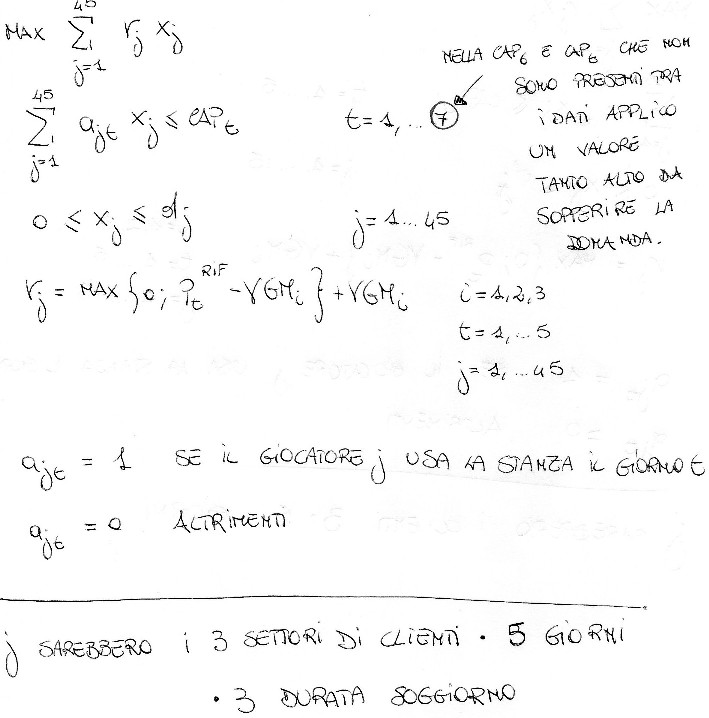 MAX 45 Σ j=1 rj xj
45 Σ j=1 ajt xj ≤ CAPt t=1,... 7
NELLA CAP6 E CAPt CHE NON
SONO PRESENTI TRA
i DATI APPLICO
UN VALORE
TANTO ALTO DA
SOPPERIRE LA
DOMANDA.
0 ≤ xj ≤ dj j=1...45
rj = MAX {0; Pt RIF - VGMi} + VGMi i=1,2,3
t=1,...5
j=1,...45
ajt = 1 SE iL GIOCATORE j USA LA STANZA iL GIORNO t
ajt = 0 ALTRIMENTI
j SAREBBERO i 3 SETTORI DI CLIENTI · 5 GIORNI
· 3 DURATA SOGGIORNO